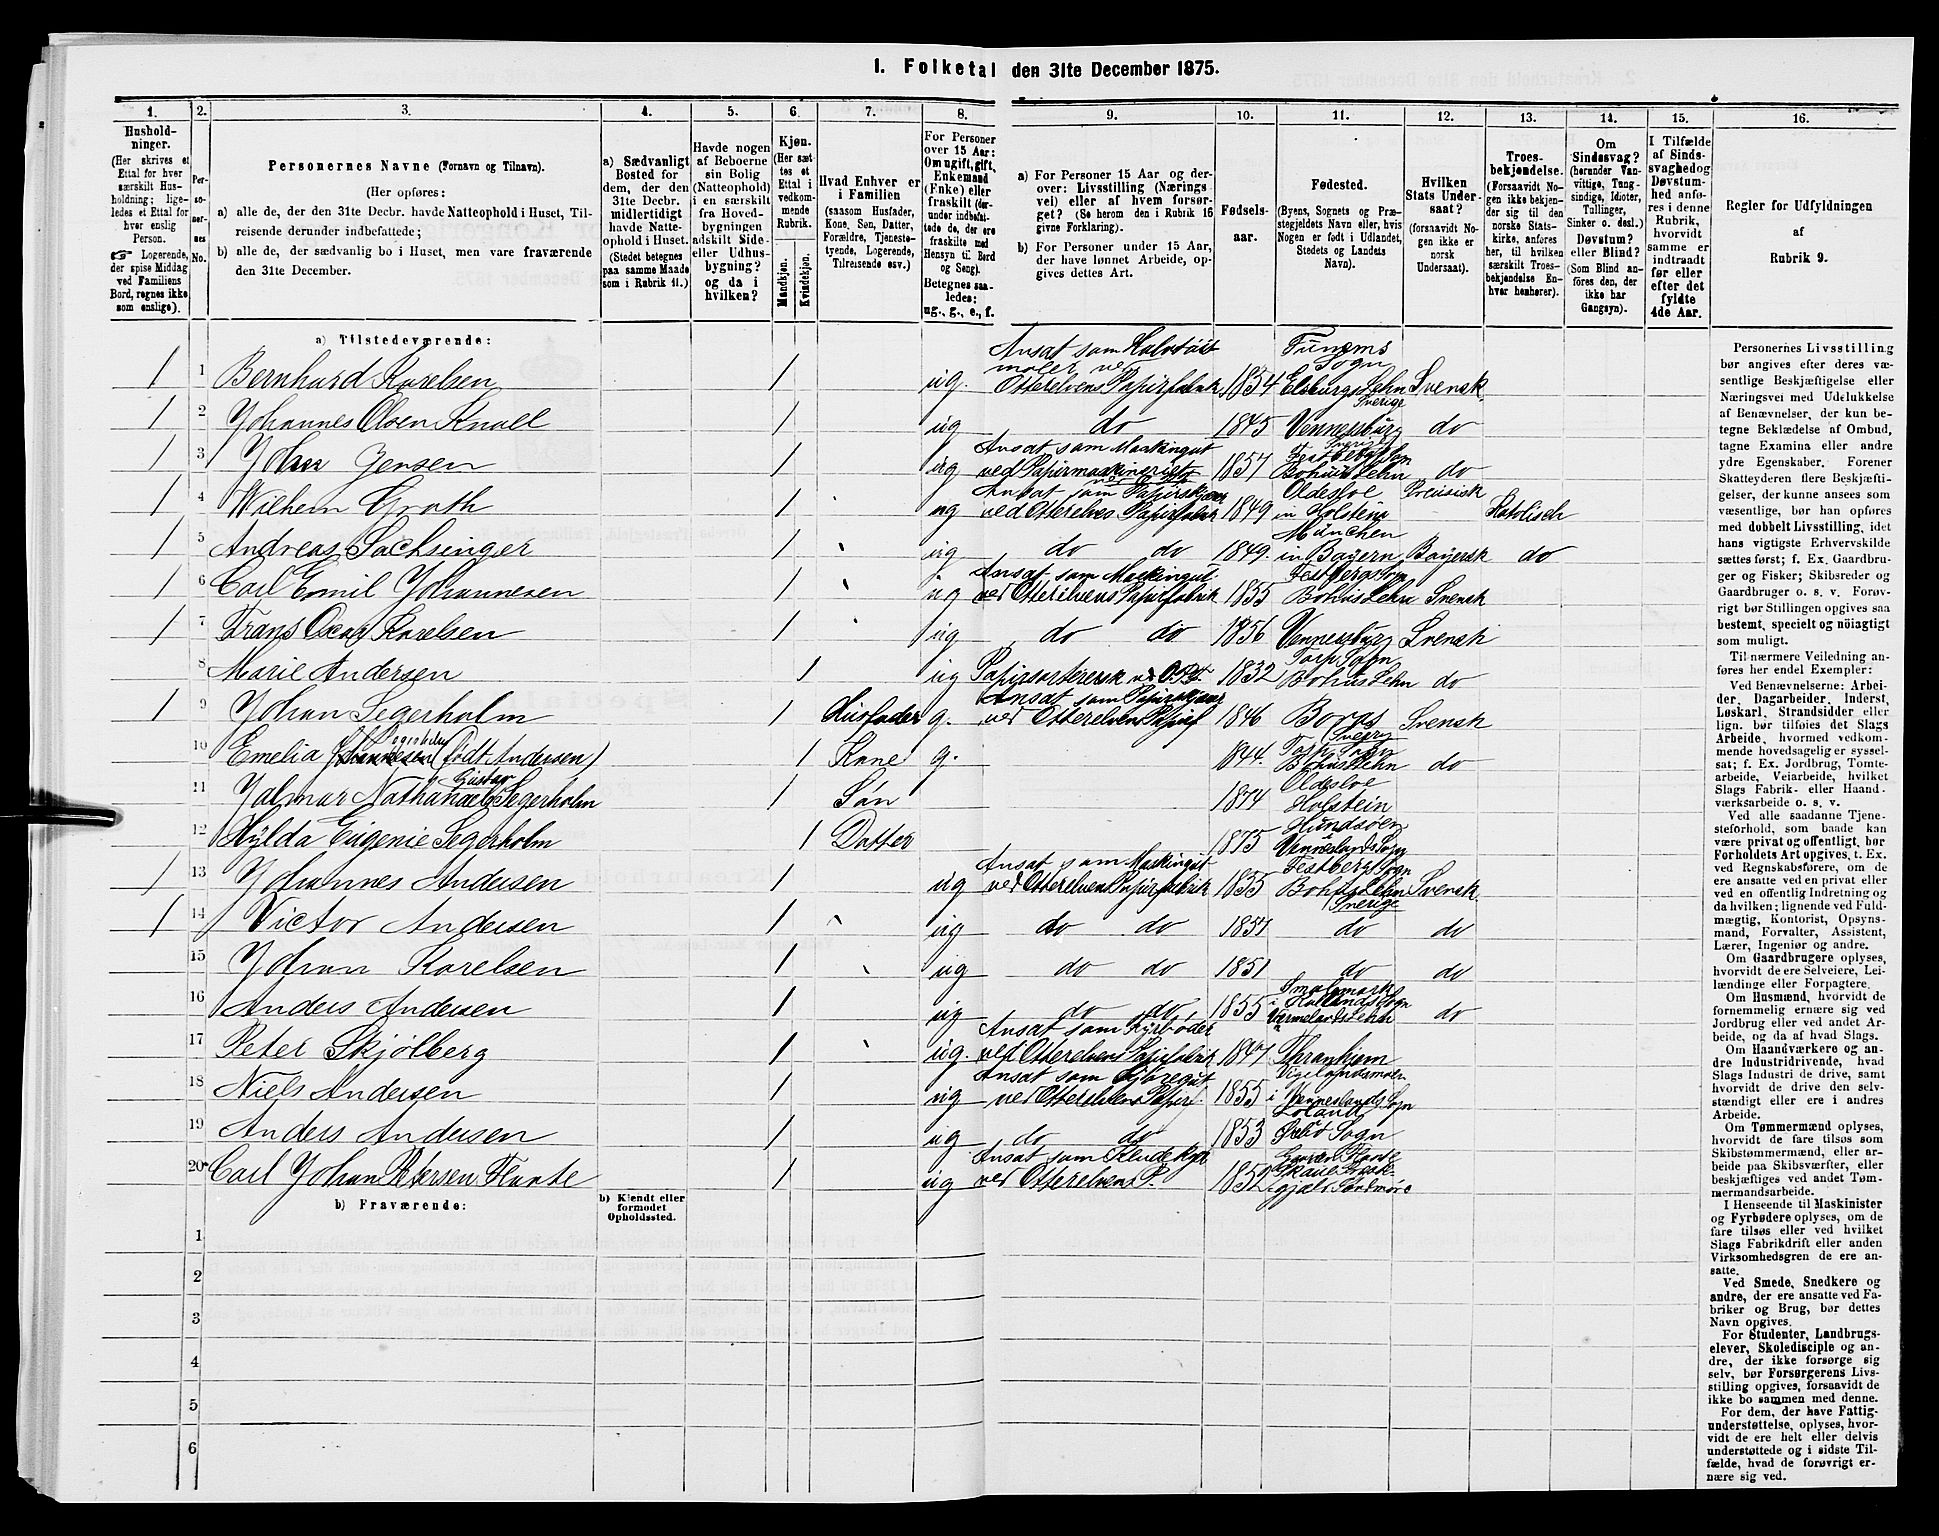 I. Folketal den 31te December 1875.
1. 2. 3. 4. 5. 6. 7. 8. 9. 10. 11. 12. 13. 14. 15. 16.
Hushold-
ninger.
(Her skrives et
Ettal for hver
særskilt Hus-
holdning; lige-
ledes et Ettal for
hver enslig
Person.
☞ Logerende,
der spise Middag
ved Familiens
Bord, regnes ikke
som enslige).
Per-
soner-
nes
No.
Personernes Navne (Fornavn og Tilnavn).
(Her opføres:
a) alle de, der den 31te Decbr. havde Natteophold i Huset, Til-
reisende derunder indbefattede;
b) alle de, der sædvanlig bo i Huset, men vare fraværende
den 31te December.
a) Sædvanligt
Bosted for
dem, der den
31te Decbr.
midlertidigt
havde Natte-
ophold i Huset.
(Stedet betegnes
paa samme Maade
som i Rubrik 11.)
Havde nogen
af Beboerne
sin Bolig
(Natteophold)
i en særskilt
fra Hoved-
bygningen
adskilt Side-
eller Udhus-
bygning?
og da i
hvilken?
Kjøn.
(Her sæt-
tes et
Ettal i
vedkom-
mende
Rubrik.
Mandkjøn.
Kvindekjøn.
Hvad Enhver er
i Familien
(saasom Husfader,
Kone, Søn, Datter,
Forældre, Tjeneste-
tyende, Logerende,
Tilreisende osv.)
For Personer
over 15 Aar:
Om ugift, gift,
Enkemand
(Enke) eller
fraskilt (der-
under indbefat-
tede de, der ere
fraskilte med
Hensyn til Bord
og Seng).
Betegnes saa-
ledes:
ug., g., e., f.
a) For Personer 15 Aar og der-
over: Livsstilling (Nærings-
vei) eller af hvem forsør-
get? (Se herom den i Rubrik 16
givne Forklaring).
b) For Personer under 15 Aar,
der have lønnet Arbeide, op-
gives dettes Art.
Fødsels-
aar.
Fødested.
(Byens, Sognets og Præ-
stegjeldets Navn eller, hvis
Nogen er født i Udlandet,
Stedets og Landets
Navn).
Hvilken
Stats Under-
saat?
(forsaavidt No-
gen ikke er
norsk
Undersaat).
Troes-
bekjendelse.
(Forsaavidt No-
gen ikke bekjen-
der sig til den
norske Stats-
kirke, anføres
her, til hvilken
særskilt Troes-
bekjendelse En-
hver henhører).
Om
Sindssvag?
(herunder Van-
vittige, Tung-
sindige, Idioter,
Tullinger,
Sinker o. desl.)
Døvstum?
eller Blind?
(Som Blind an-
føres den, der
ikke har
Gangsyn).
I Tilfælde
af Sinds-
svaghed og
Døvstum-
hed anfø-
res i denne
Rubrik,
hvorvidt
samme er
indtraadt
før eller
efter det
fyldte
4de Aar.
Regler for Udfyldningen
af
Rubrik 9.
a) Tilstedeværende:
1 1 Bernhard Karelsen 1 ug. 1854 Sogn Elsburgs Lehn Svensk
1 2 Johannes Olsen Knall 1 ug do 1845 Sverige Vennersburg do
1 3 Johan Jensen 1 ug Ansat som Maskingut 1857 Bohus Lehn do
1 4 Wilhem Groth 1 ug Ansat som Papirskjærer ved Otterelvens Papirfabrik 1849 Oldesloe in Holstena Preusisk Katolisch
1 5 Andreas Sachsinger 1 ug do do 1849. München in Bayern Bayersk do
1 6 Carl Emil Johannesen 1 ug Ansat som Maskingut ved Otterelvens Papirfabrik 1855 Festberg Sogn Bohus Lehn Svensk
1 7 Frans Oscar Karelsen 1 ug do do 1856 Vennersburg Svensk
8 Marie Andersen 1 ug Papirsortererske 1832 Tarp Sogn Bohus Lehn do
1 9 Johan Segerholm 1 Husfader g. Ansat som Papirskjærer ved Otterelvens Papirf 1846 Boras Svensk
10 Emelia (født Andersen) 1 Kone g. 1844. Sverg Tarp Sogn Bohus Lehn do
11 Jalmar Nathanael Gustav Segerholm 1 Søn 1874 Oldesloe Holstein
12 Hylda Eugenie Segerholm 1 Datter 1875 Hundsøen Venneslands Sogn
1 13 Johannes Andersen 1 ug Ansat som Maskingut ved Otterelvens Papirfabrik 1855 Festberg Sogn Bohus Lehn Sverige Svensk
1 14 Victor Andersen 1 ug do do 1857 do do
15 Johan Karelsen 1 ug do do 1851 do do
16 Anders Andersen 1 ug do do 1855 Vermelands Lehn do
17 Peter Skjølberg 1 ug. Ansat som Fyrbøder ved Otterelvens Papirfabrik 1847 Thranhjem
18 Niels Andersen 1 ug Ansat som ved Otterelvens Papirf. 1855 Vigelandsmoen i Venneslands Sogn
19 Anders Andersen 1 ug do do 1853 Sogn
20 Carl Johan Petersen 1 ug Ansat som ved Otterelvens P. 1852
b) Fraværende:
b) Kjendt eller
formodet
Opholdssted.
1
2
3
4
5
6
Personernes Livsstilling
bør angives efter deres væ-
sentlige Beskjæftigelse eller
Næringsvei med Udelukkelse
af Benævnelser, der kun be-
tegne Beklædelse af Ombud,
tagne Examina eller andre
ydre Egenskaber. Forener
Skatteyderen flere Beskjæfti-
gelser, der kunne ansees som
væsentlige, bør han opføres
med dobbelt Livsstilling, idet
hans vigtigste Erhvervskilde
sættes først; f. Ex. Gaardbru-
ger og Fisker; Skibsreder og
Gaardbruger o. s. v. Forøv-
rigt bør Stillingen opgives saa
bestemt, specielt og nøiagtigt
som muligt.
Til nærmere Veiledning an-
føres her endel Exempler:
Ved Benævnelserne: Arbei-
der, Dagarbeider, Inderst,
Løskarl, Strandsidder eller
lign. bør tilføies det Slags
Arbeide, hvormed vedkom-
mende hovedsagelig er syssel-
sat; f. Ex. Jordbrug, Tomte-
arbeide, Veiarbeide, hvilket
Slags Fabrik- eller Haand-
værksarbeide o. s. v.
Ved alle saadanne Tjene-
steforhold, som baade kan
være privat og offentligt, bør
Forholdets Art opgives, t. Ex.
ved Regnskabsførere, om de
ere ansatte ved en privat eller
ved en offentlig Indretning og
da hvilken; lignende ved Fuld-
mægtig, Kontorist, Opsyns-
mand, Forvalter, Assistent,
Lærer, Ingeniør og andre.
Om Gaardbrugere oplyses,
hvorvidt de ere Selveiere, Lei-
lændinge eller Forpagtere.
Om Husmænd, hvorvidt de
fornemmelig ernære sig ved
Jordbrug eller ved andet Ar-
beide, og da af hvad Slags.
Om Haandværkere og an-
dre Industridrivende, hvad
Slags Industri de drive, samt
hvorvidt de drive den selv-
stændigt eller ere i andres
Arbeide.
Om Tømmermænd oplyses,
hvorvidt de fare tilsøs som
Skibstømmermænd, eller ar-
beide paa Skibsværfter, eller
beskjæftiges ved andet Tøm-
mermandsarbeide.
I Henseende til Maskinister
og Fyrbødere oplyses, om de
fare tilsøs eller ved hvilket
Slags Fabrikdrift eller anden
Virksomhedsgren de ere an-
satte.
Ved Smede, Snedkere og
andre, der ere ansatte ved Fa-
briker og Brug, bør dettes
Navn opgives.
For Studenter, Landbrugs-
elever, Skoledisciple og an-
dre, der ikke forsørge sig
selv, bør Forsørgerens Livs-
stilling opgives, forsaavidt de
ikke bo sammen med denne.
For dem, der have Fattig-
understøttelse, oplyses, hvor-
vidt de ere helt eller delvis
understøttede og i sidste Til-
fælde, hvad de forøvrigt er-
nære sig ved.